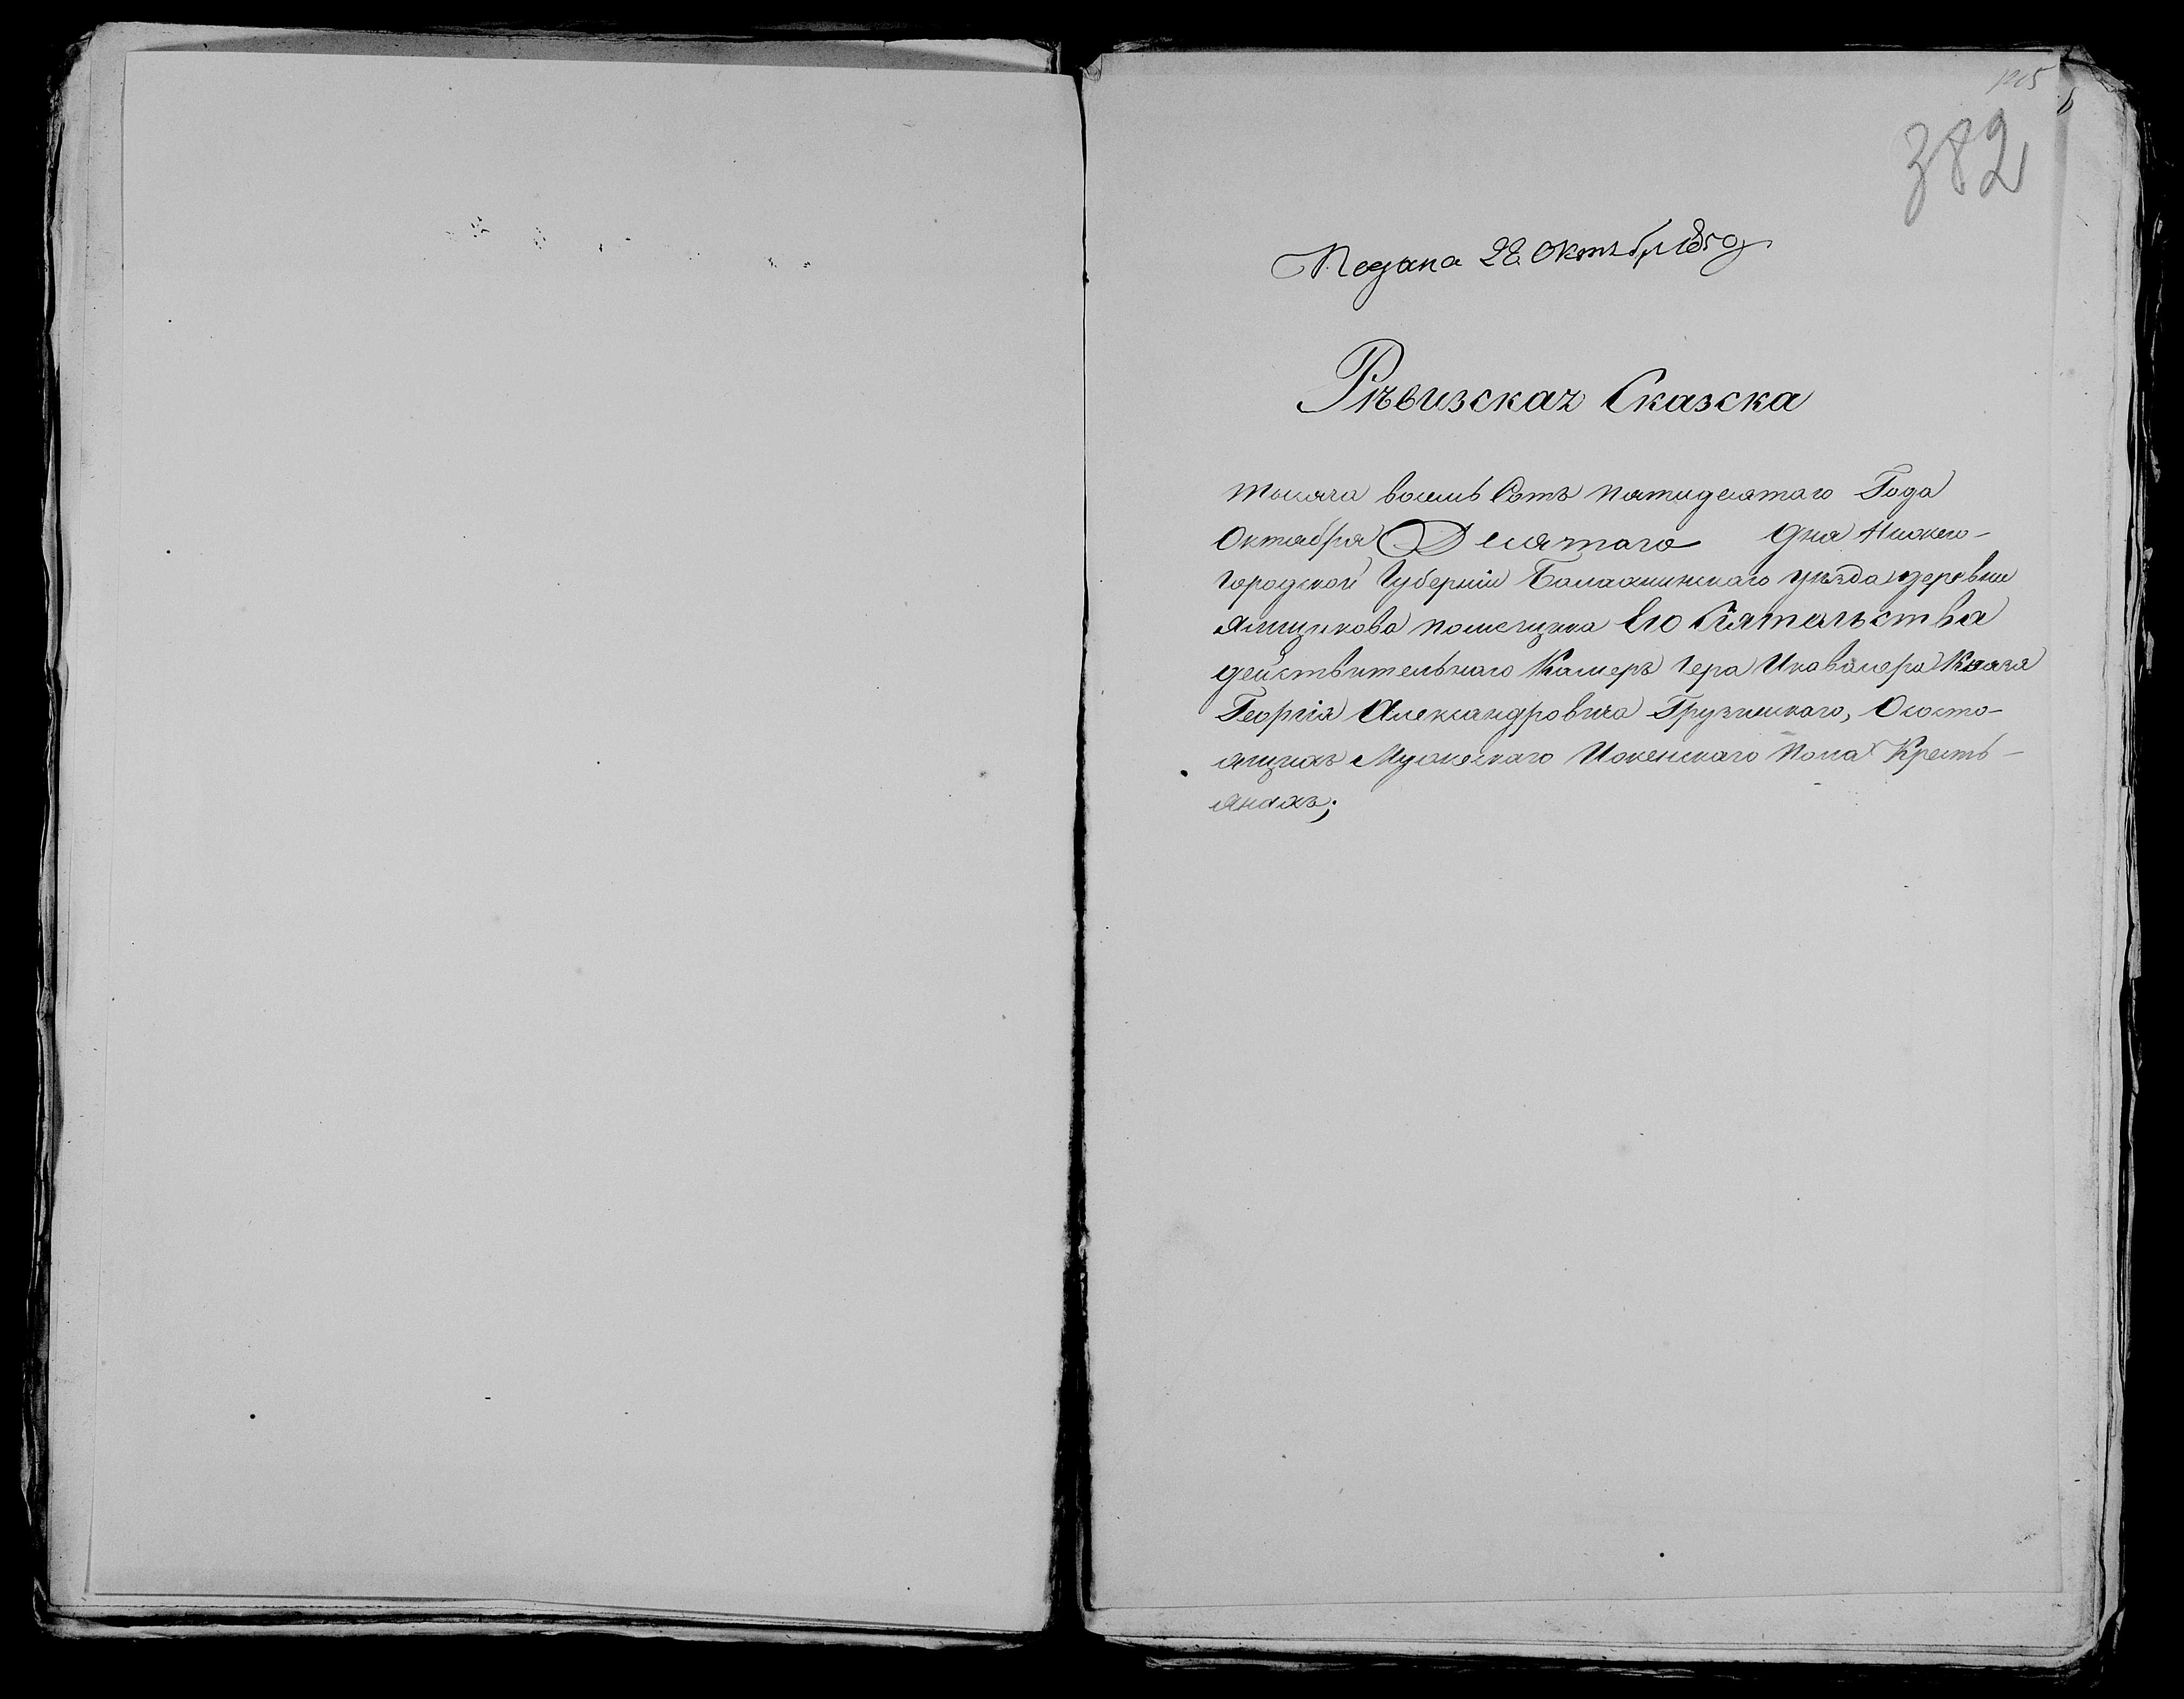 382
Подана 28 Октября 1850 г
Рѣвизская Сказска
тысяча восемь Сотъ пятидесятаго Года
Октября Десятаго дня Нижего-
городской Губерніи Балахнинскаго уѣзда деревни
Ямщикова помещика Его Сіятельства
действительнаго Камеръ Гера Икавалера Князя
Георгія Александровича Грузинскаго, Ососто-
ящихъ Мужескаго Иженскаго Пола Кресть-
янахъ;